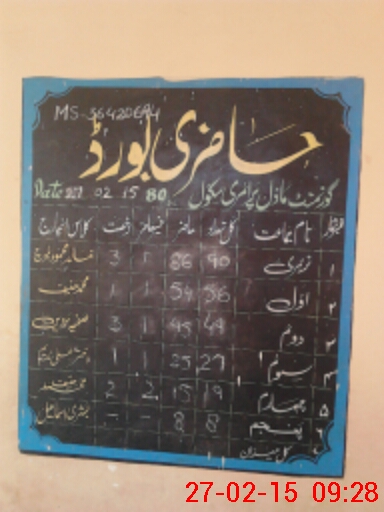 MS-36420694
حاضری بورڈ
گورنمنٹ ماڈل پرائمری سکول 80 Date 27 02 15
نمبر شمار نام جماعت کل تعداد حاضر غیر حاضر رخصت کلاس انچارج
۱ نرسری 90 86 1 3
۲ اول 56 54 1 1 محمد حنیف
۳ دوئم 49 45 1 3
۴ سوئم 27 25 1 1
۵ چہارم 19 15 2 2 محمد حنیف
۶ پنجم 8 8 - - بشریٰ اسماعیل
کل میزان
27-02-15 09:28